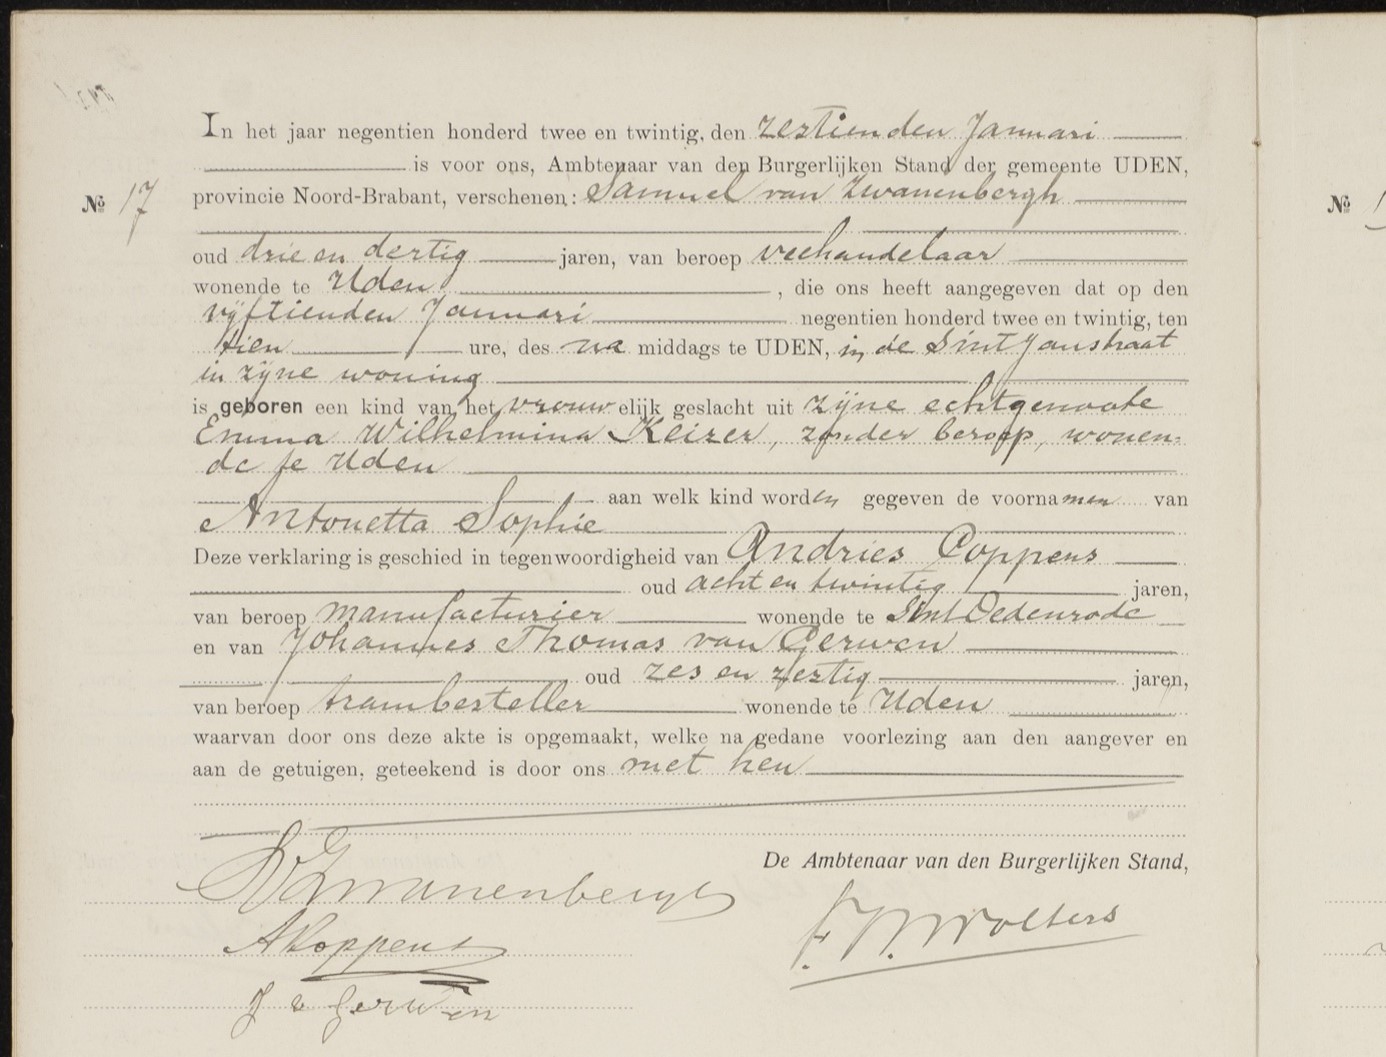 In het jaar negentien honderd twee en twintig, den zestienden Januari
is voor ons, Ambtenaar van den Burgerlijken Stand der gemeente UDEN,
№ 17 provincie Noord-Brabant, verschenen: Samuel van Zwanenbergh
oud drie en dertig jaren, van beroep veehandelaar
wonende te Uden, die ons heeft aangegeven dat op den
vijftienden Januari negentien honderd twee en twintig, ten
tien ure, des na middags te UDEN, in de Sint Janstraat
in zijne woning
is geboren een kind van het vrouwelijk geslacht uit zijne echtgenoote
Emma Wilhelmina Keizer, zonder beroep, wonen-
de te Uden
aan welk kind worden gegeven de voornamen van
Antonetta Sophie
Deze verklaring is geschied in tegenwoordigheid van Andries Coppens
oud acht en twintig jaren,
van beroep manufacturier wonende te Sint Oedenrode
en van Johannes Thomas van Gerwen
oud zes en zestig jaren,
van beroep trambesteller wonende te Uden
waarvan door ons deze akte is opgemaakt, welke na gedane voorlezing aan den aangever en
aan de getuigen, geteekend is door ons met hen
De Ambtenaar van den Burgerlijken Stand,
SvZwanenbergh
F. N. Wolters
A Coppens
J v Gerwen
№